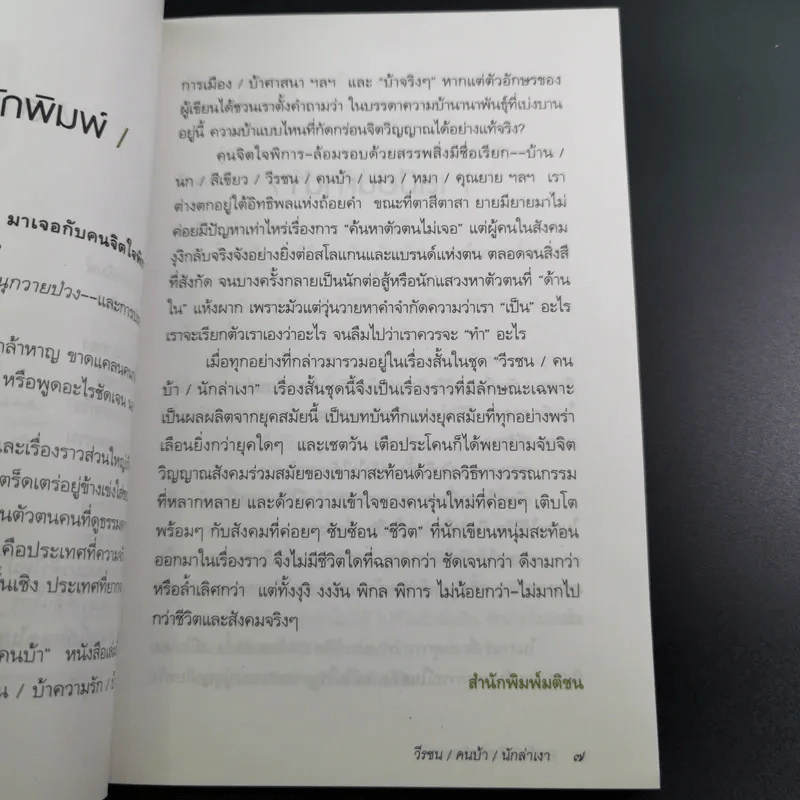 กพิมพ์ /
มาเจอกับคนจิตใจ
นุกวายป่วง--และการ
กล้าหาญ ขาดแคลน
หรือพูดอะไรชัดเจน
และเรื่องราวส่วนใหญ่
ตร็ดเตร่อยู่ข้างเข่ง
นตัวตนคนที่ดูธรรม
คือประเทศที่ความ
นเชิง ประเทศที่ยาก
คนบ้า” หนังสือเล่ม
น / บ้าความรัก /
การเมือง / บ้าศาสนา ฯลฯ และ “บ้าจริงๆ” หากแต่ตัวอักษรของ
ผู้เขียนได้ชวนเราตั้งคำถามว่า ในบรรดาความบ้านานาพันธุ์ที่เบ่งบาน
อยู่นี้ ความบ้าแบบไหนที่กัดกร่อนจิตวิญญาณได้อย่างแท้จริง?
คนจิตใจพิการ-ล้อมรอบด้วยสรรพสิ่งมีชื่อเรียก--บ้าน /
นก / สีเขียว / วีรชน / คนบ้า / แมว / หมา / คุณยาย ฯลฯ เรา
ต่างตกอยู่ใต้อิทธิพลแห่งถ้อยคำ ขณะที่ตาสีตาสา ยายมียายมาไม่
ค่อยมีปัญหาเท่าไหร่เรื่องการ “ค้นหาตัวตนไม่เจอ” แต่ผู้คนในสังคม
งุงิกลับจริงจังอย่างยิ่งต่อสโลแกนและแบรนด์แห่งตน ตลอดจนสิ่งสี
ที่สังกัด จนบางครั้งกลายเป็นนักต่อสู้หรือนักแสวงหาตัวตนที่ “ด้าน
ใน” แห้งผาก เพราะมัวแต่วุ่นวายหาคำจำกัดความว่าเรา “เป็น” อะไร
เราจะเรียกตัวเราเองว่าอะไร จนลืมไปว่าเราควรจะ “ทำ” อะไร
เมื่อทุกอย่างที่กล่าวมารวมอยู่ในเรื่องสั้นในชุด “วีรชน / คน
บ้า / นักล่าเงา” เรื่องสั้นชุดนี้จึงเป็นเรื่องราวที่มีลักษณะเฉพาะ
เป็นผลผลิตจากยุคสมัยนี้ เป็นบทบันทึกแห่งยุคสมัยที่ทุกอย่างพร่า
เลือนยิ่งกว่ายุคใดๆ และเชตวัน เตือประโคนก็ได้พยายามจับจิต
วิญญาณสังคมร่วมสมัยของเขามาสะท้อนด้วยกลวิธีทางวรรณกรรม
ที่หลากหลาย และด้วยความเข้าใจของคนรุ่นใหม่ที่ค่อยๆ เติบโต
พร้อมๆ กับสังคมที่ค่อยๆ ซับซ้อน “ชีวิต” ที่นักเขียนหนุ่มสะท้อน
ออกมาในเรื่องราว จึงไม่มีชีวิตใดที่ฉลาดกว่า ชัดเจนกว่า ดีงามกว่า
หรือล้ำเลิศกว่า แต่ทั้งงุงิ งงงัน พิกล พิการ ไม่น้อยกว่า-ไม่มากไป
กว่าชีวิตและสังคมจริงๆ
สำนักพิมพ์มติชน
วีรชน / คนบ้า / นักล่าเงา ๗